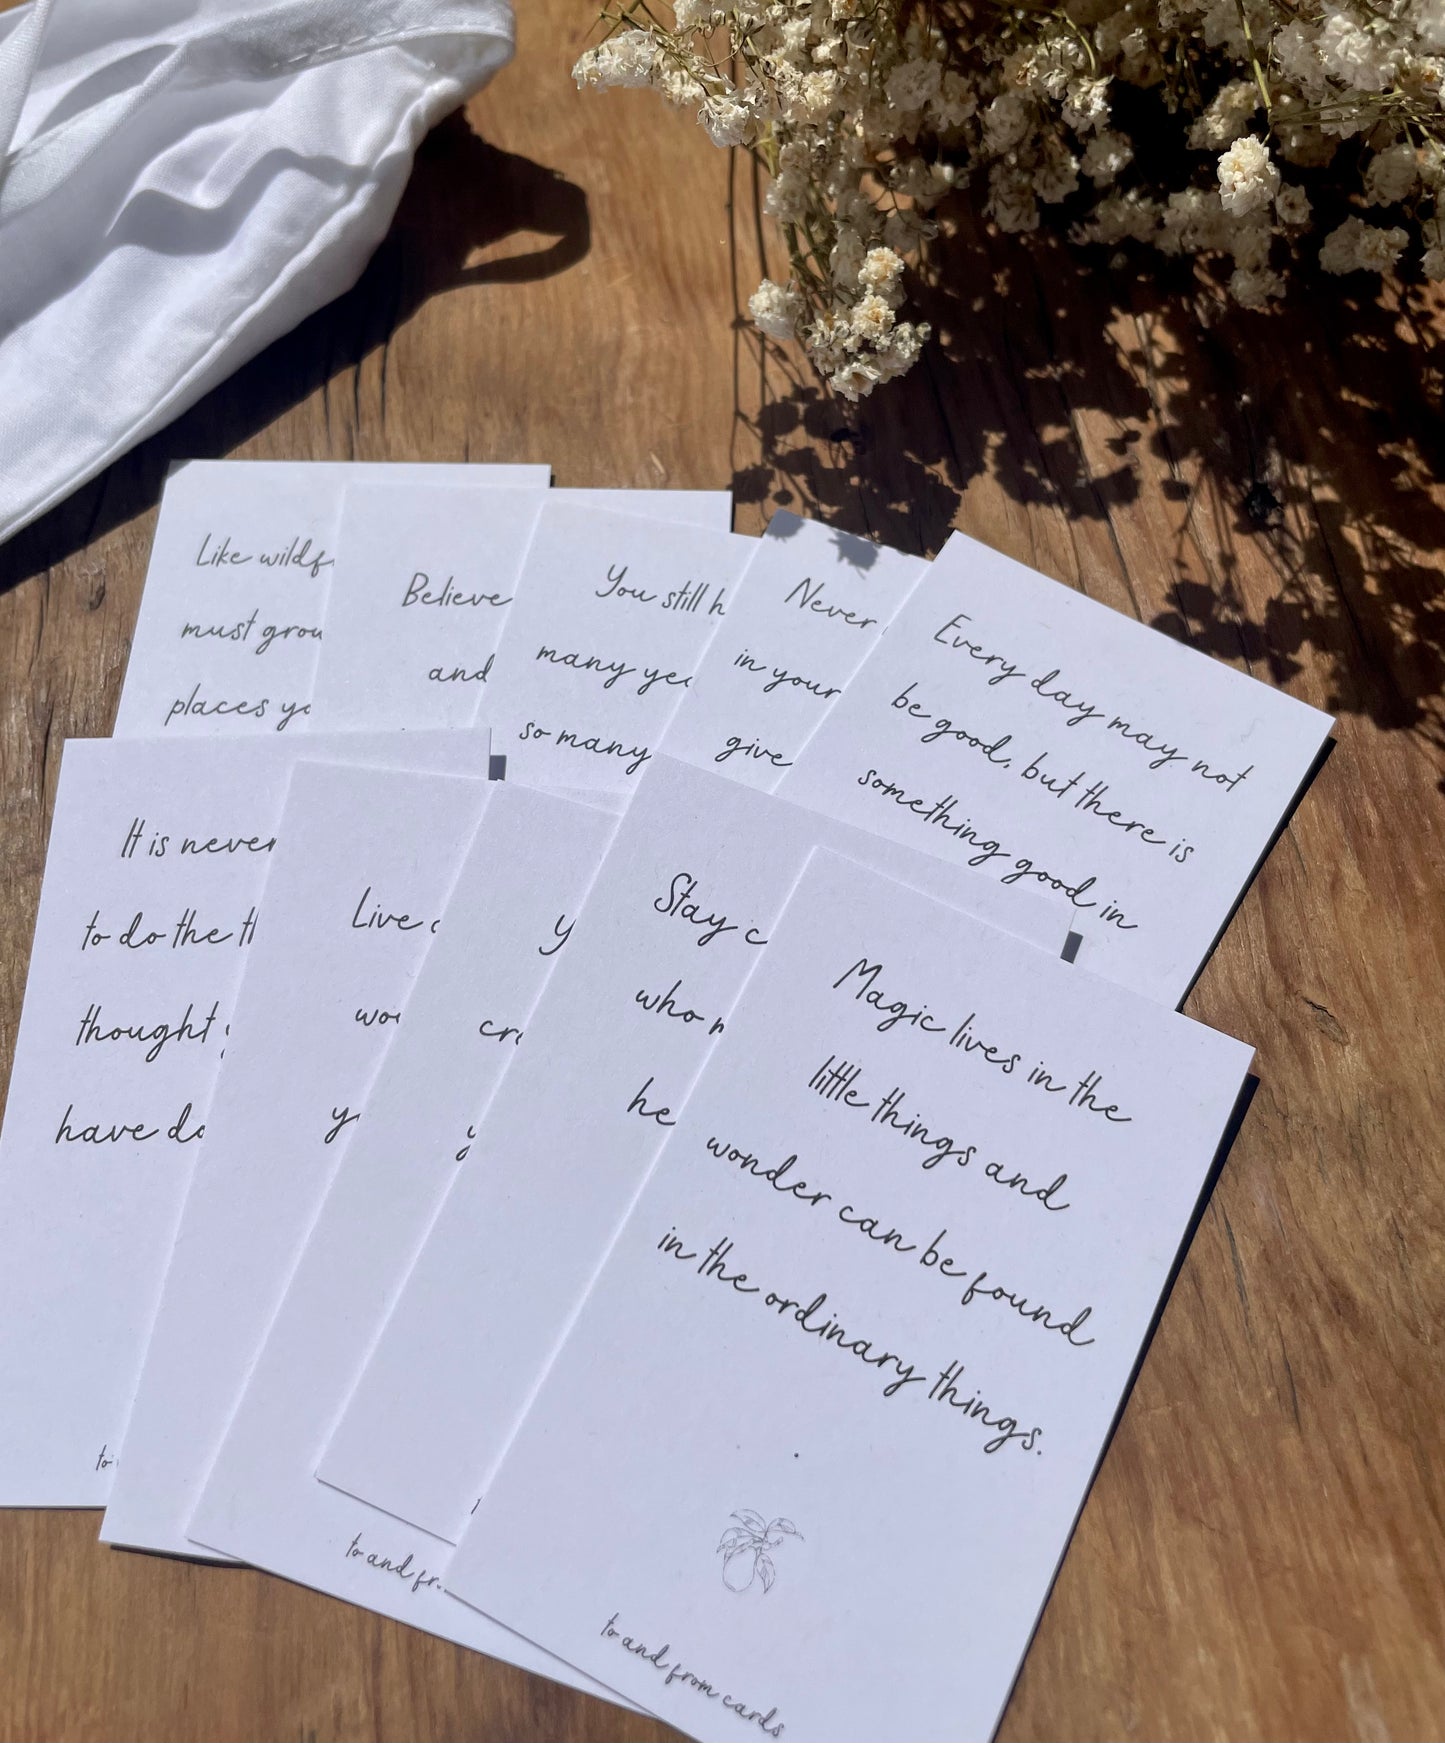 Like
must
places
Believe
and
You still
many
so many
Never
in your
give
Every day may not
be good, but there is
something good in
It is never
to do the
thought
have
Live
Stay
who
he
Magic lives in the
little things and
wonder can be found
in the ordinary things.
to and from cards
to
to and